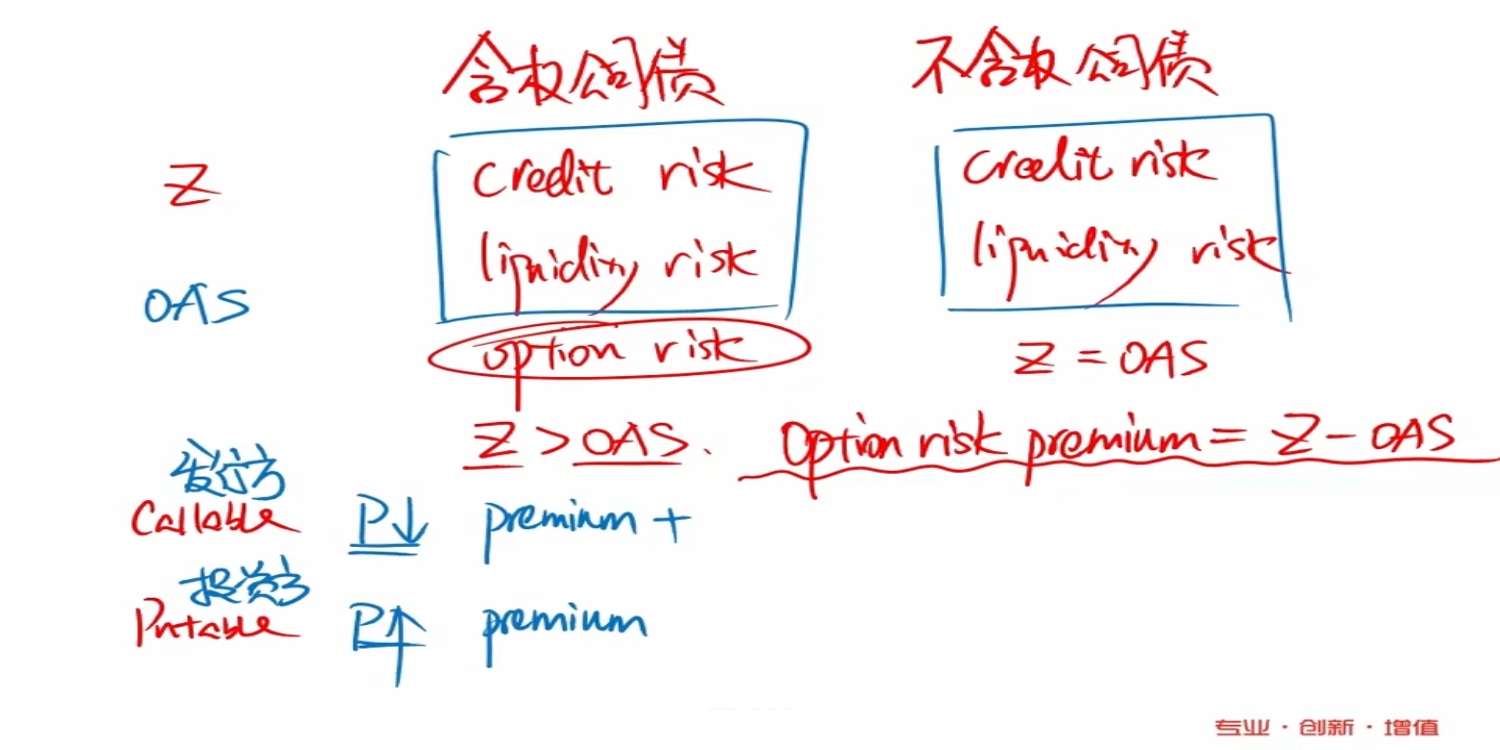 含权公司债
不含权公司债
Z
credit risk
liquidity risk
option risk
credit risk
liquidity risk
OAS
Z = OAS
Z > OAS.
Option risk premium = Z - OAS
发行方
Callable P↓ premium +
投资方
Putable P↑ premium
专业·创新·增值